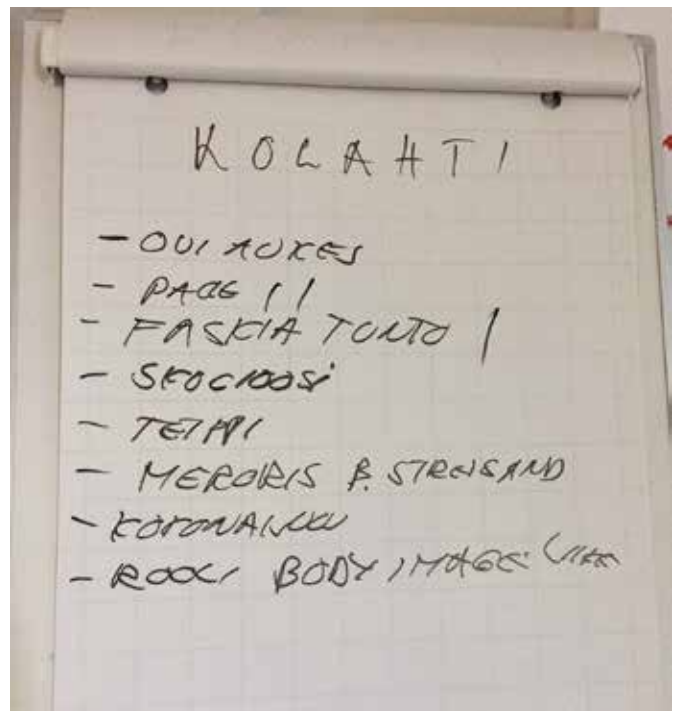 KOLAHTI
- OVI AUKES
- PAGE 11
- FASKIA TUNTO |
- SKOLIOOSI
- TEIPPI
- MEMORIS B. STREISAND
- KOKONAISUUS
- ROOLI BODY IMAGE: